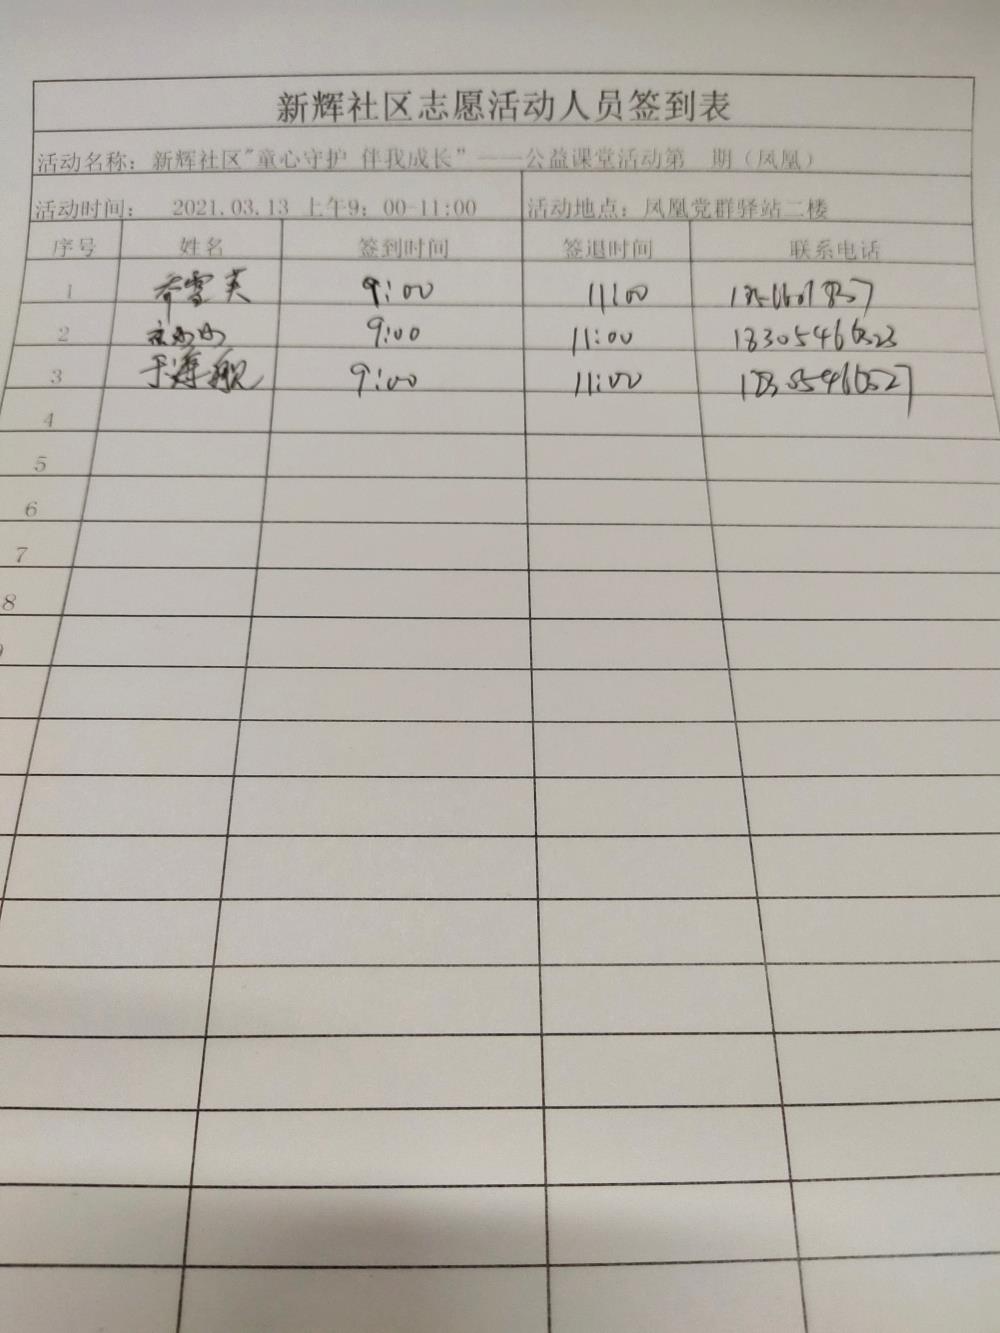 新辉社区志愿活动人员签到表
活动名称：新辉社区"童心守护 伴我成长"——公益课堂活动第 期（凤凰）
活动时间： 2021.03.13 上午9：00-11:00 活动地点：凤凰党群驿站二楼
序号 姓名 签到时间 签退时间 联系电话
1 乔雪芙 9:00 11:00
2 9:00 11:00 18305466323
3 于海舰 9:00 11:00
4
5
6
7
8